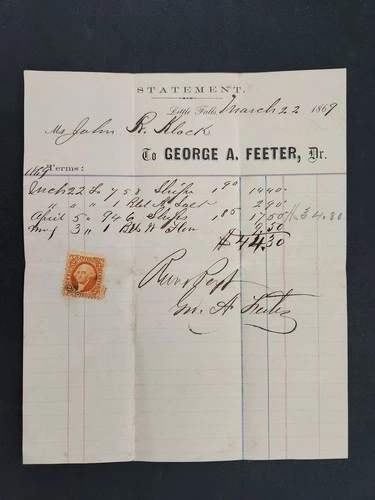 STATEMENT.
Little Falls, March 22 1869
Mr John R. Klock
To GEORGE A. FEETER, Dr.
1869 Terms:
Mch 22 To 7 58 Ships 1 90 14 40
" " " 1 Bbl Salt 2 90
April 5 " 9 46 Ships 1.85 17 50 $34.80
3 " 1 Bbl W Flour 9 50
$44.30
Recd Payt
Geo. A Feeter